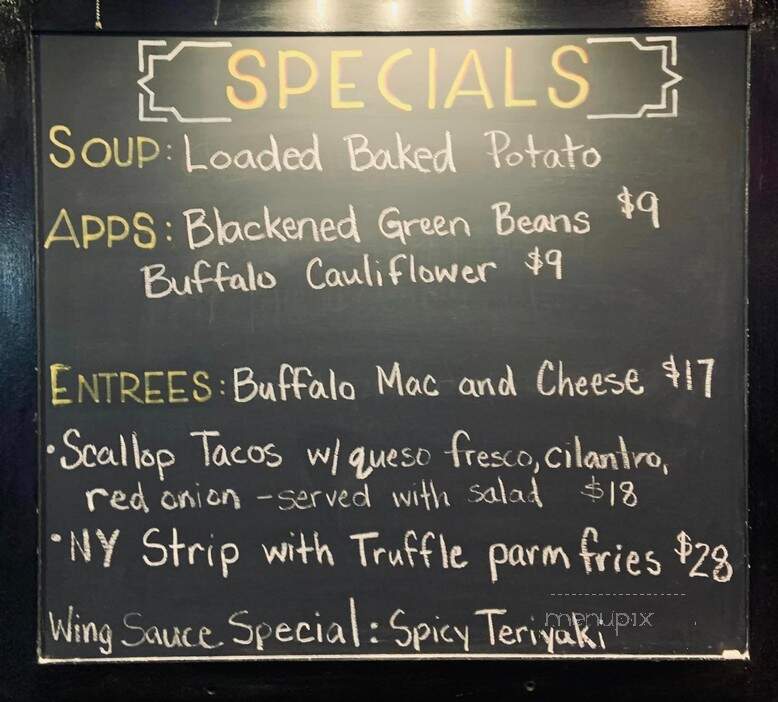 SPECIALS
SOUP: Loaded Baked Potato
APPS: Blackened Green Beans $9
Buffalo Cauliflower $9
ENTREES: Buffalo Mac and Cheese $17
•Scallop Tacos w/ queso fresco, cilantro,
red onion - served with salad $18
•NY Strip with Truffle parm fries $28
menupix
Wing Sauce Special: Spicy Teriyaki